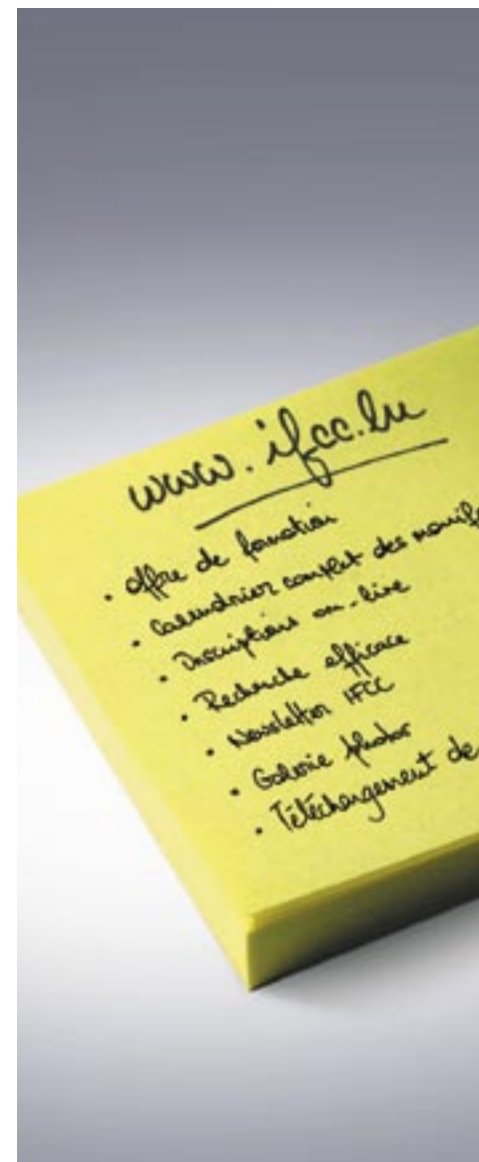 www.ifcc.lu
• Offre de formation
• Calendrier complet des manife
• Inscriptions on-line
• Recherche efficace
• Newsletter IFCC
• Galerie photos
• Téléchargement de